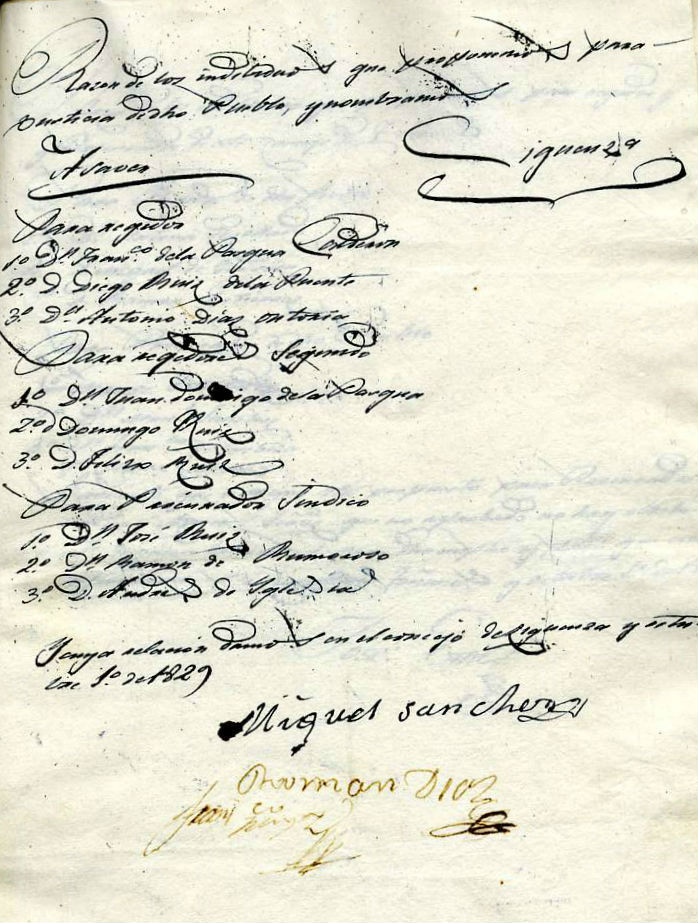 Razon de los individuos que proponemos para
Justicia de dho. Pueblo, y nombramos
Asaver
Siguenza
Para regidor
1º Dn Franco. de la Pasqua Calderon
2º D. Diego Ruiz de la Puente
3º Dn Antonio Dias Ontoria
Para regidores Segundo
1º Dn Juan domingo de la Pasqua
2º D Domingo Ruiz
3º D. Felix Ruiz
Para Procurador Sindico
1º Dn José Ruiz
2º Dn Ramon de Rumoroso
3º D. Andres de Yglesia
Y cuya relacion damos en el concejo de siguenza y
1º de 1829
Miguel sanchez
Rroman Diaz
Juan